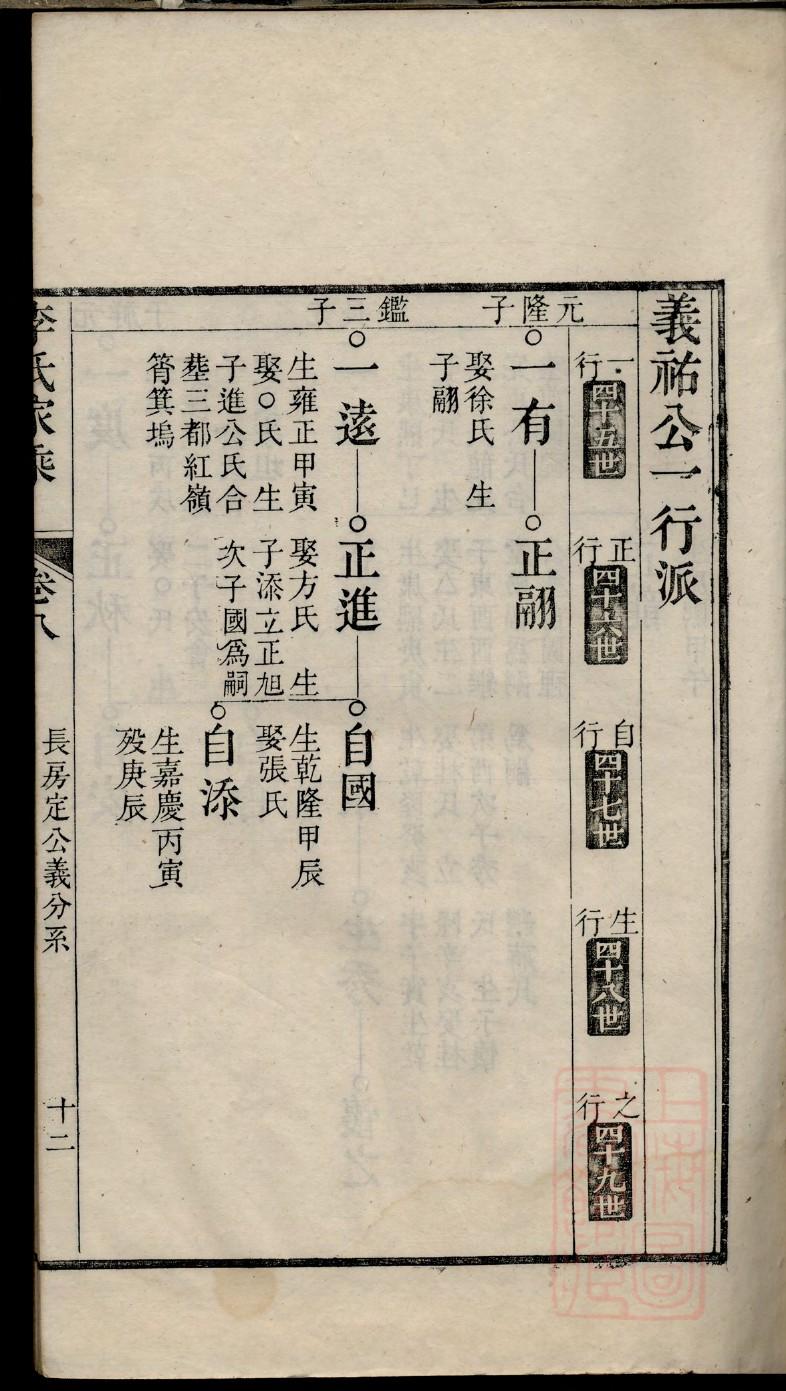 義祐公一行派
一行
四十五世
正行
四十六世
自行
四十七世
生行
四十八世
之行
四十九世
元隆子
一有
正翮
娶徐氏　生
子翮
鑑三子
一遠
正進
自國
生雍正甲寅
娶○氏　生
子進公氏合
塟三都紅嶺
筲箕塢
娶方氏　生
子添立正旭
次子國爲嗣
生乾隆甲辰
娶張氏
自添
生嘉慶丙寅
殁庚辰
李氏家乘
卷八
長房定公義分系
十二